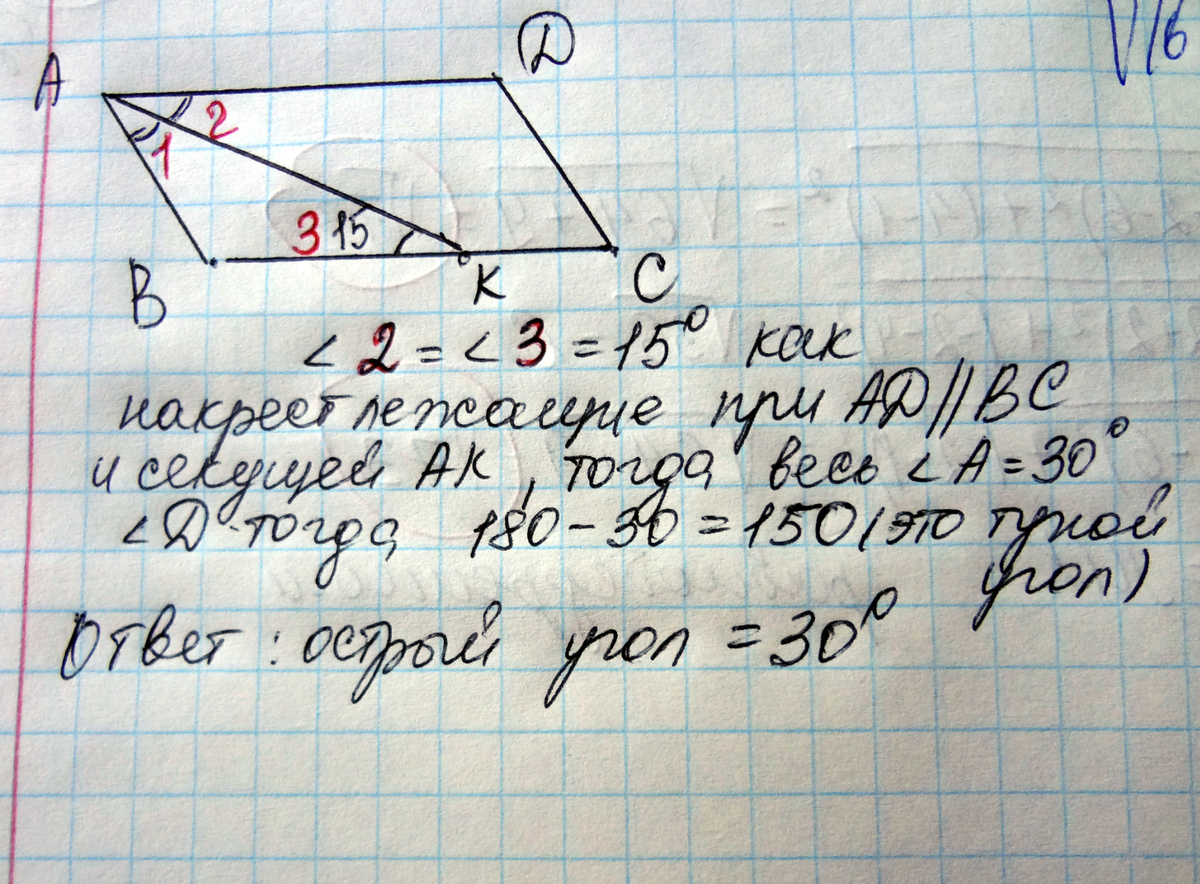 V/б
A
D
2
1
3 15
B
K
C
< 2 = < 3 = 15° как
накрест лежащие при AD//BC
и секущей AK, тогда весь < A = 30°
< D тогда 180 - 30 = 150 (это тупой
угол)
Ответ: острый угол = 30°